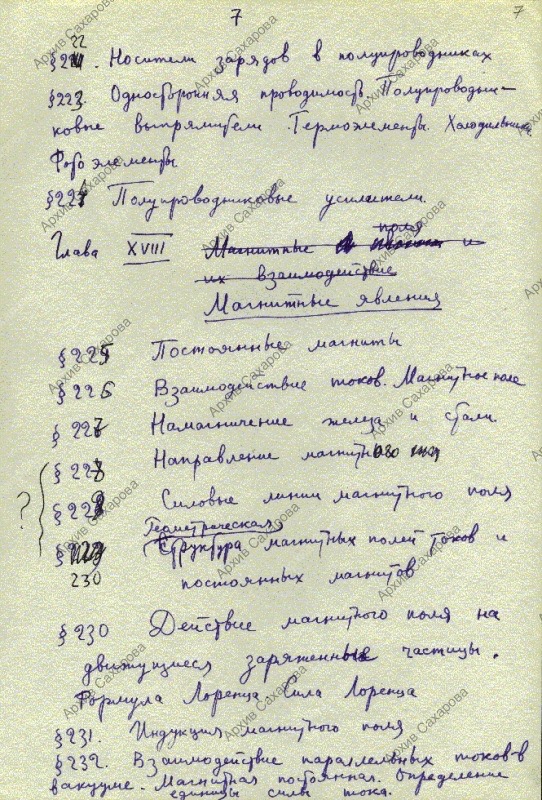 7
7
§222. Носители зарядов в полупроводниках
§223. Односторонняя проводимость. Полупроводни-
ковые выпрямители. Термоэлементы. Холодильники.
Фотоэлементы
§224 Полупроводниковые усилители.
поля
Глава XVIII Магнитные явления и
их взаимодействие
Магнитные явления
§225 Постоянные магниты
§226 Взаимодействие токов. Магнитное поле
§227 Намагничение железа и стали
§228 Направление магнитного поля
? §229 Силовые линии магнитного поля
Геометрическая
§229 Структура магнитных полей токов и
230 постоянных магнитов
§230 Действие магнитного поля на
движущиеся заряженные частицы.
Формула Лоренца Сила Лоренца
§231. Индукция магнитного поля
§232. Взаимодействие параллельных токов в
вакууме. Магнитная постоянная. Определение
единицы силы тока.
Архив Сахарова